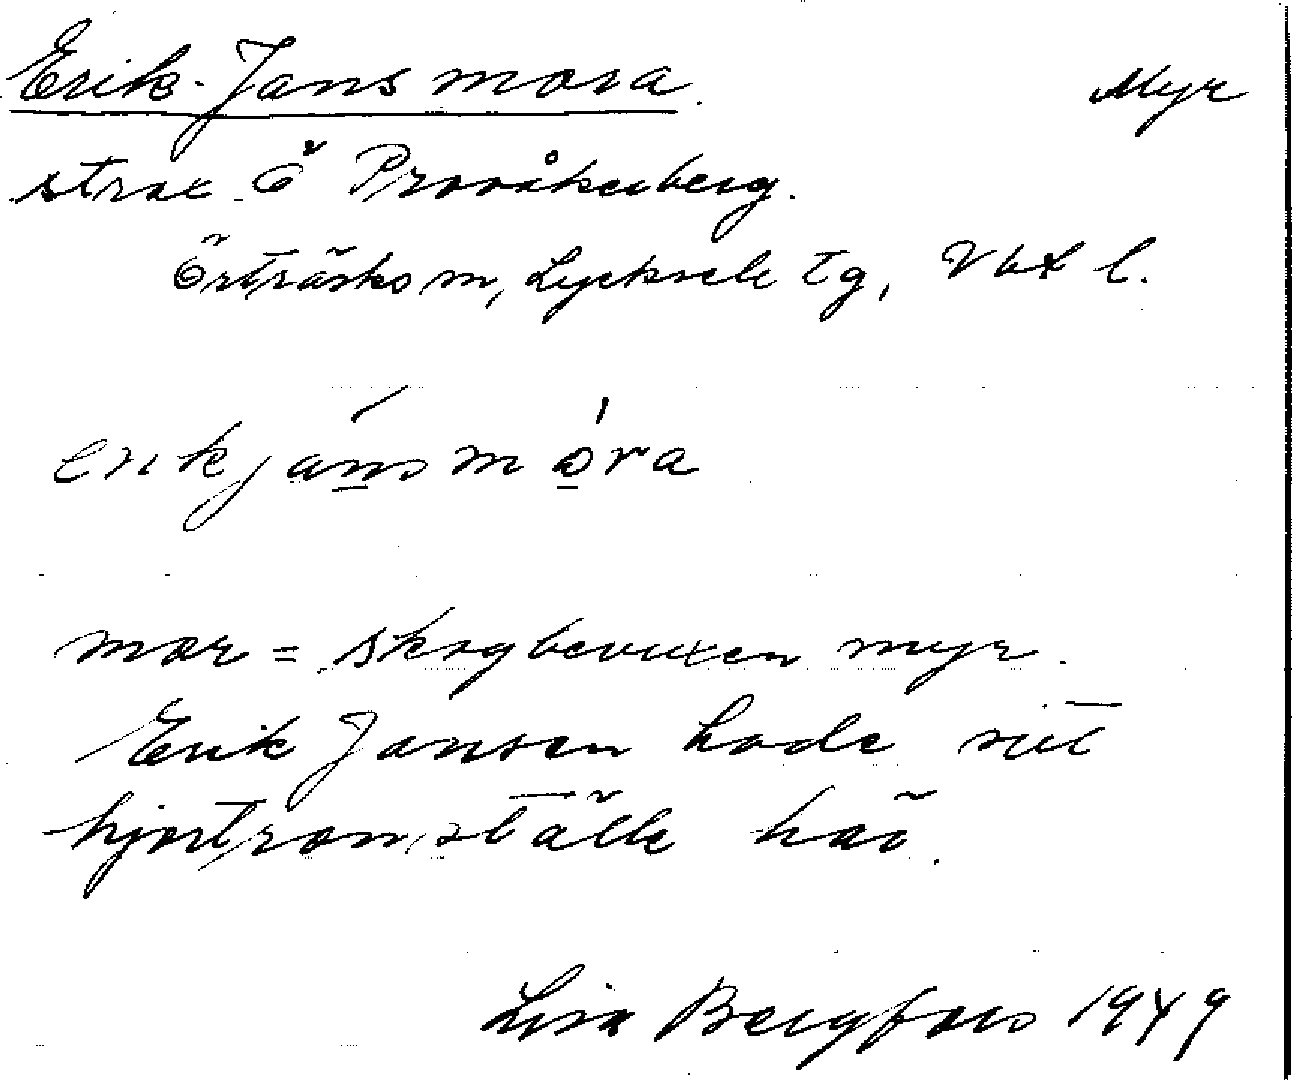 Erik-Jans mora. Myr
strax Ö Provåkersberg.
Örträsks sn, Lycksele tg, Vbt l.
erikjánsmóra
mor = skogbevuxen myr.
Erik Jansen hade sitt
hjortronställe här.
Lisa Bergfors 1949